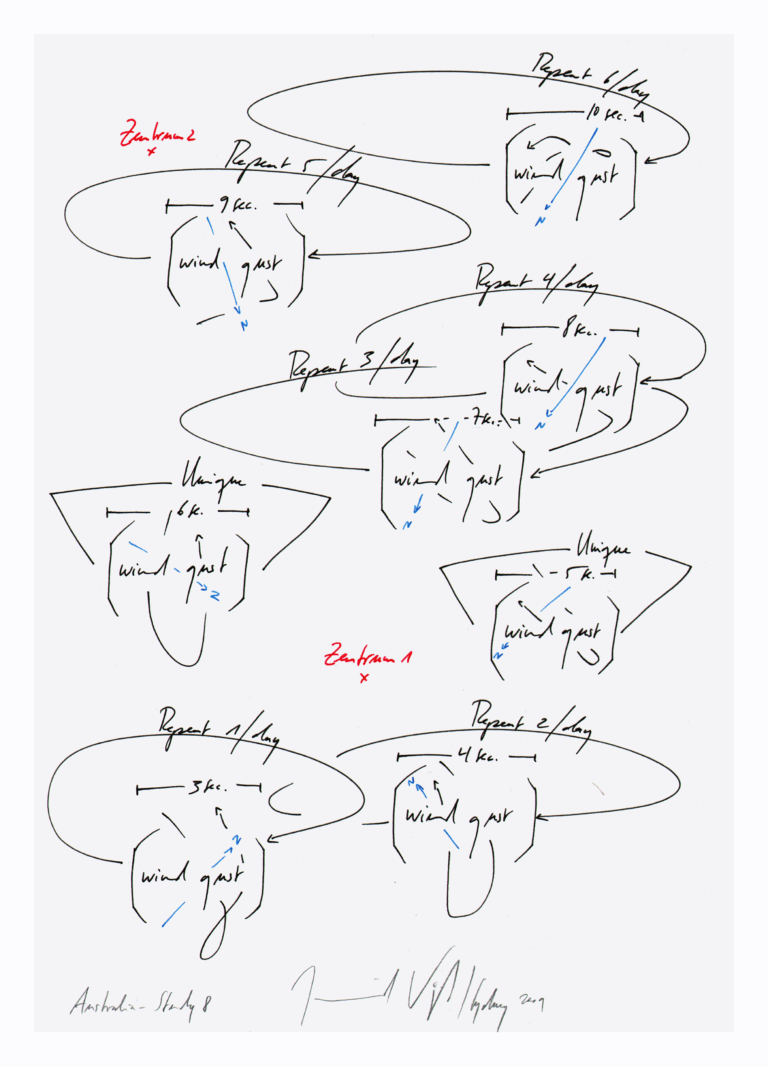 Repeat 6/day
10 sec.
wind gust
N
Zentrum 2
x
Repeat 5/day
9 sec.
wind gust
N
Repeat 4/day
8 sec.
wind gust
N
Repeat 3/day
7 sec.
wind gust
N
Unique
6 sec.
wind gust
N
Unique
5 sec.
wind gust
N
Zentrum 1
x
Repeat 1/day
3 sec.
wind gust
N
Repeat 2/day
4 sec.
wind gust
N
Australia - Study 8
/ Sydney 2009